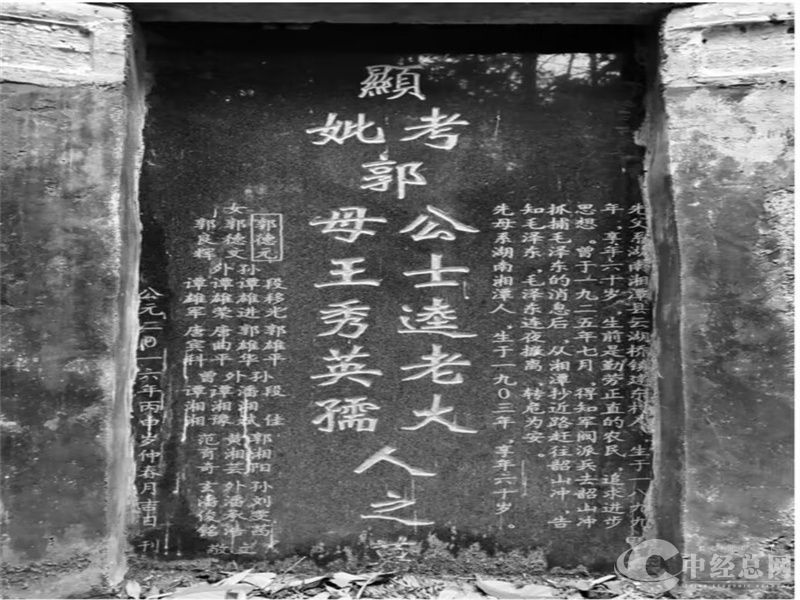 先父系湖南湘潭县云湖桥镇建东村人,生于一八九九
年,享年六十岁,生前是勤劳正直的农民,追求进步
思想。曾于一九二五年七月,得知军阀派兵去韶山冲
抓捕毛泽东的消息后,从湘潭抄近路赶往韶山冲,告
知毛泽东,毛泽东连夜撤离,转危为安。
先母系湖南湘潭人,生于一九0三年,享年六十岁。
顯
考
妣
郭
公士逵老大
母王秀英孺
人之
郭德元 段移光 郭雄平 孙段佳 郭湘阳 孙刘雯茜
女郭德文 孙谭雄进 郭雄华 外潘湘斌 黄湘芸 外潘承
郭良辉 外谭雄荣 唐曲平 谭湘豫 范育奇 玄潘俊铭
谭雄军 唐宾科 曾谭湘湘
公元二0一六年丙申岁仲春月吉日 刊
中经总网